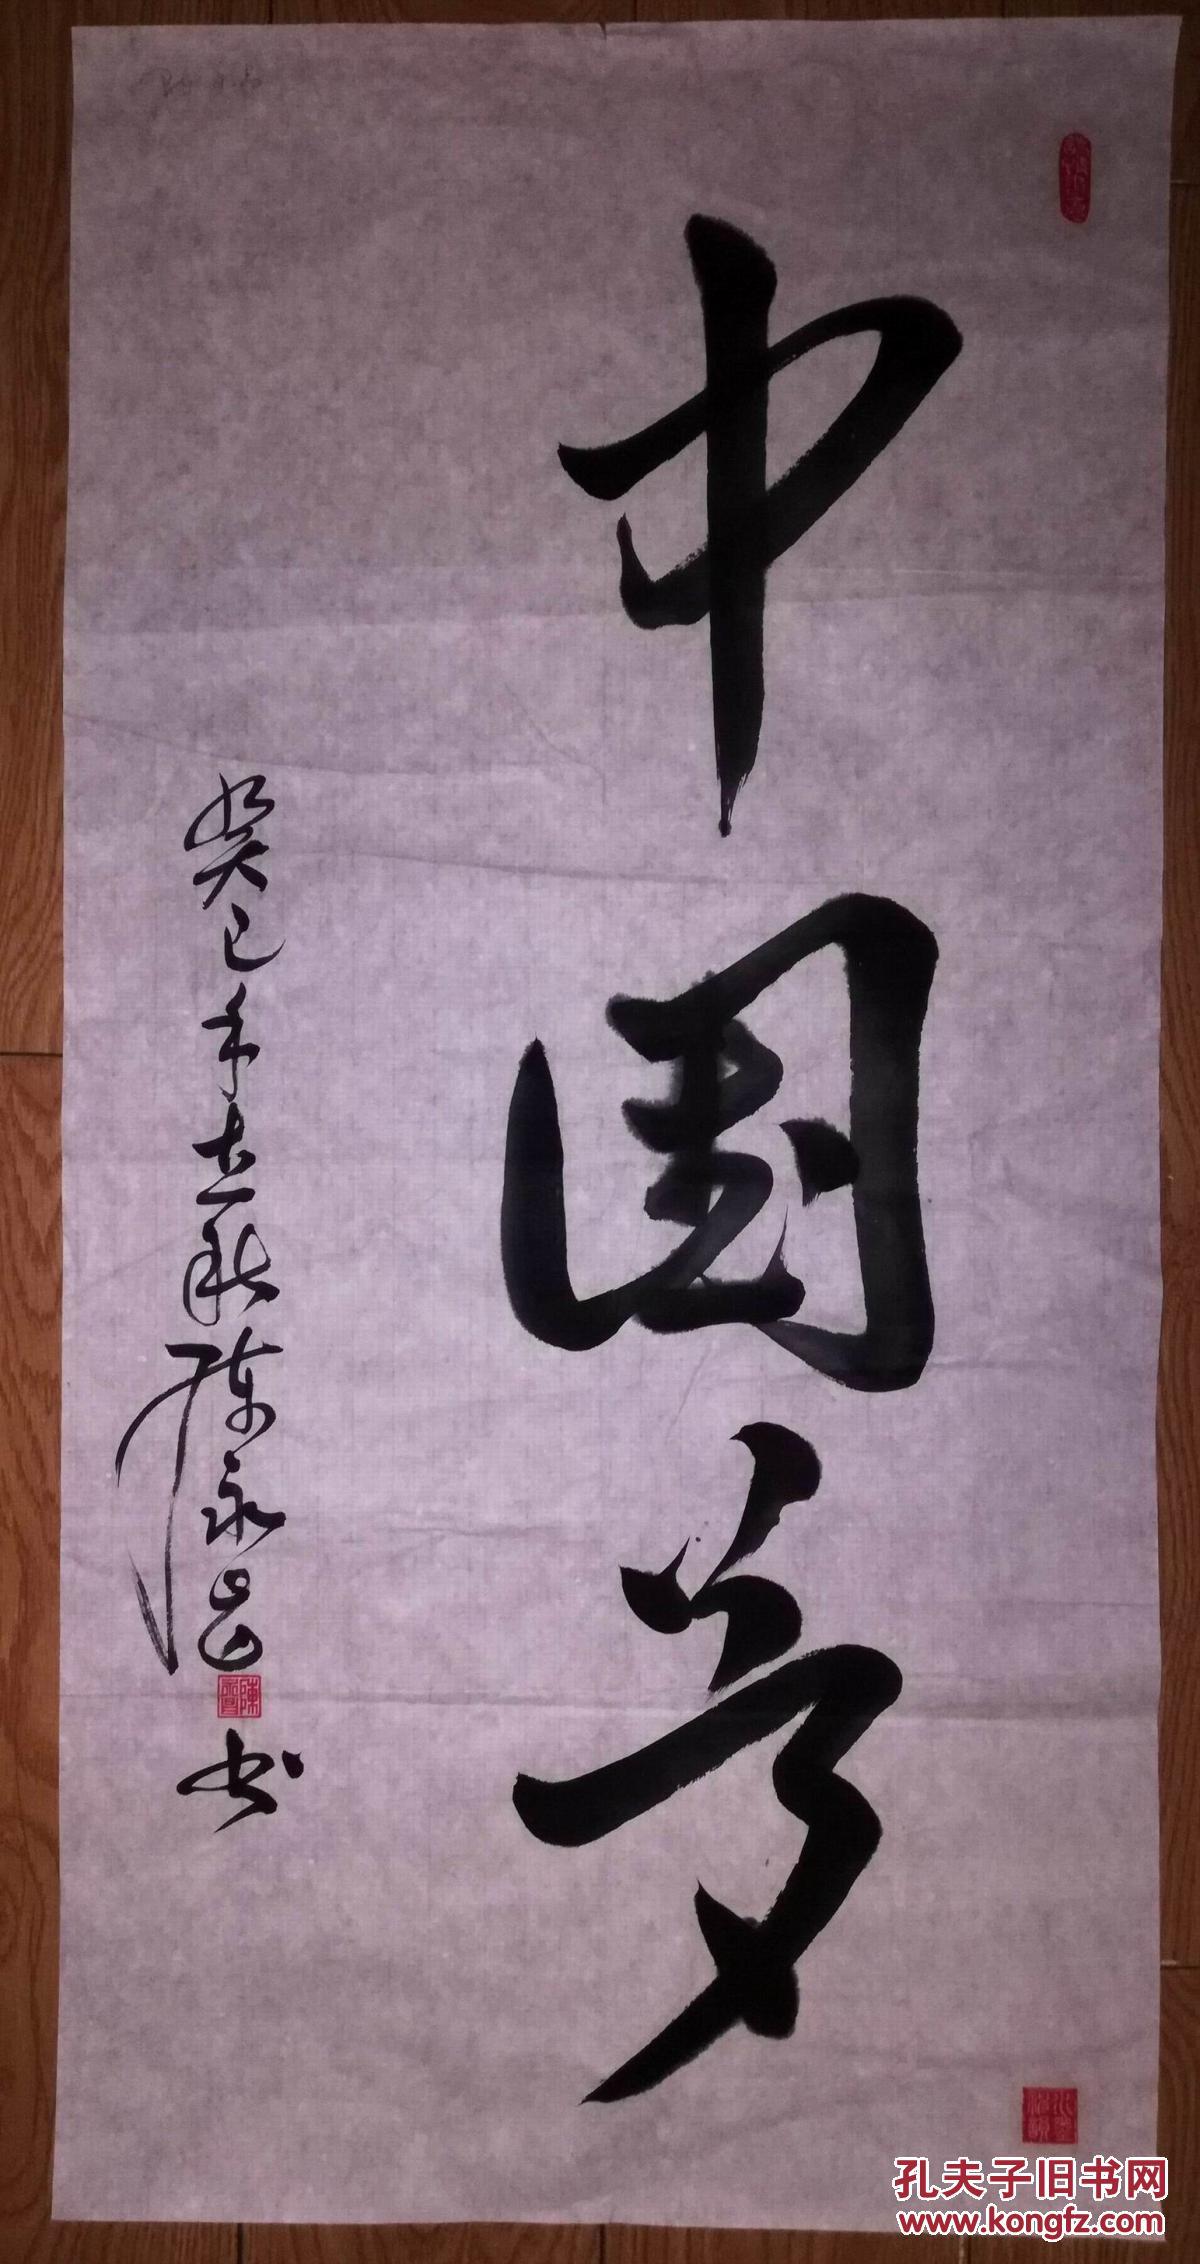 中国梦
癸巳年立秋陈永昌书
孔夫子旧书网
www.kongfz.com